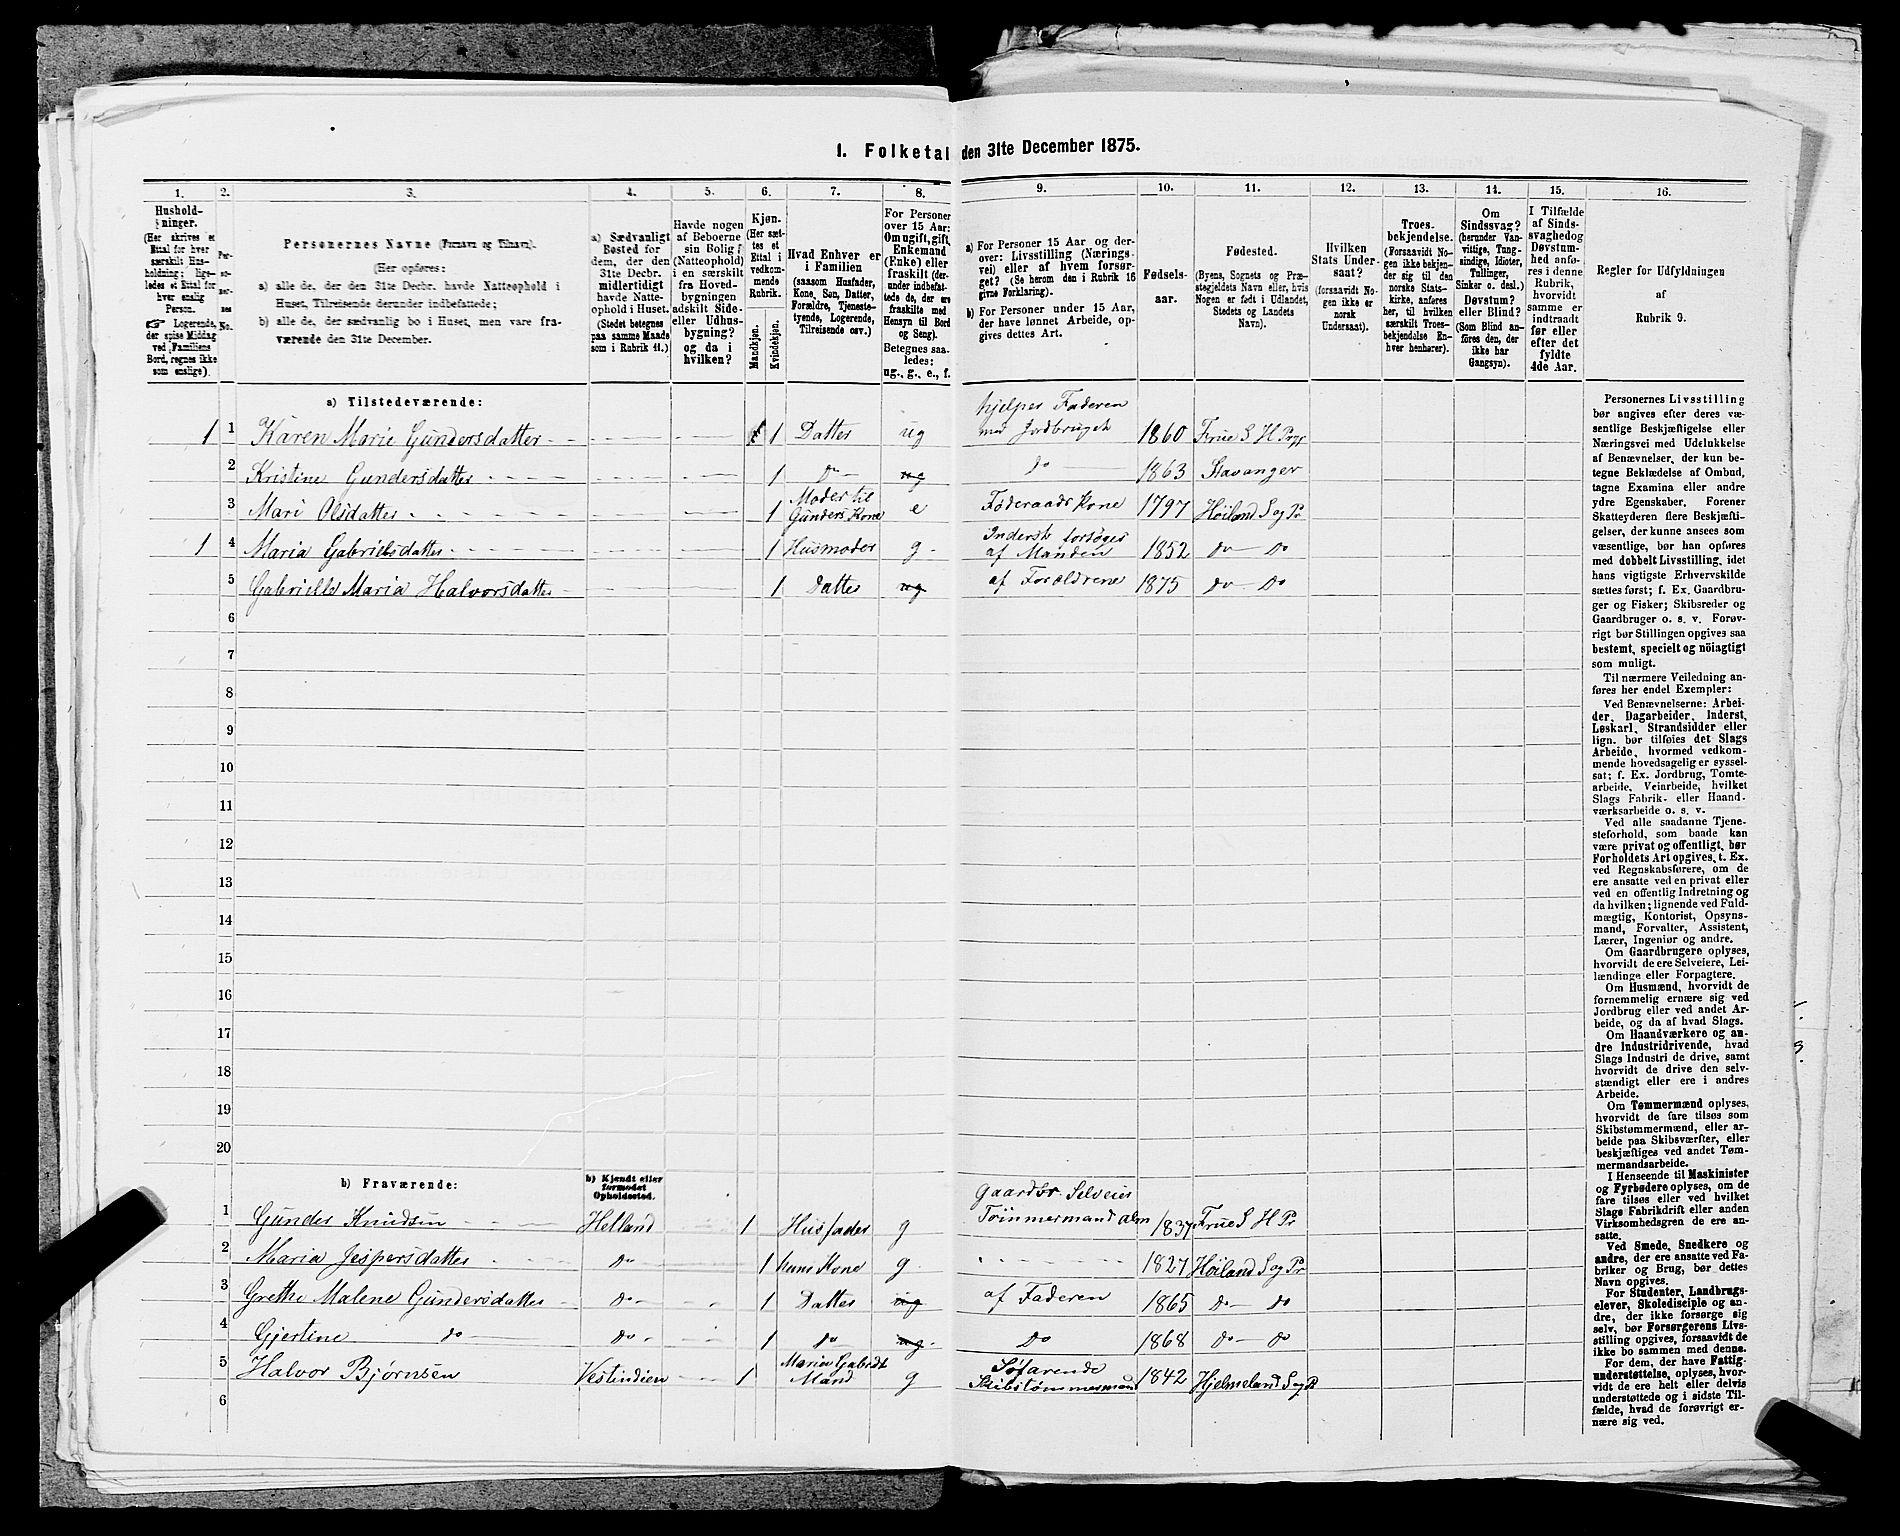 1. Folketal den 31te December 1875.
1. 2. 3. 4. 5. 6. 7. 8. 9. 10. 11. 12. 13. 14. 15. 16.
Husholdninger.
(Her skrives et
Ettal for hver
særskilt Husholdning; ligeledes et Ettal for
hver enslig
Person.
☞ Logerende,
der spise Middag
ved Familiens
Bord, regnes ikke
som enslige).
Personernes No.
Personernes Navne (Fornavn og Tilnavn).
(Her opføres:
a) alle de, der den 31te Decbr. havde Natteophold i
Huset, Tilreisende derunder indbefattede;
b) alle de, der sædvanlig bo i Huset, men vare fraværende den 31te December.
a) Sædvanligt
Bosted for
dem, der den
31te Decbr.
midlertidigt
havde Natteophold i Huset.
(Stedet betegnes
paa samme Maade
som i Rubrik 11.)
Havde nogen
af Beboerne
sin Bolig
(Natteophold)
i en særskilt
fra Hovedbygningen
adskilt Side-
eller Udhusbygning?
og da i
hvilken?
Kjøn.
(Her sættes et
Ettal i
vedkommende
Rubrik.
Mandkjøn.
Kvindekjøn.
Hvad Enhver er
i Familien
(saasom Husfader,
Kone, Søn, Datter,
Forældre, Tjenestetyende, Logerende,
Tilreisende osv.)
For Personer
over 15 Aar:
Om ugift, gift,
Enkemand
(Enke) eller
fraskilt (derunder indbefattede de, der ere
fraskilte med
Hensyn til Bord
og Seng).
Betegnes saaledes:
ug., g., e., f.
a) For Personer 15 Aar og derover: Livsstilling (Næringsvei) eller af hvem forsørget? (Se herom den i Rubrik 16
givne Forklaring).
b) For Personer under 15 Aar,
der have lønnet Arbeide, opgives dettes Art.
Fødselsaar.
Fødested.
(Byens, Sognets og Præstegjeldets Navn eller, hvis
Nogen er født i Udlandet,
Stedets og Landets
Navn).
Hvilken
Stats Undersaat?
(forsaavidt Nogen ikke er
norsk
Undersaat).
Troesbekjendelse.
(Forsaavidt Nogen ikke bekjender sig til den
norske Statskirke, anføres
her, til hvilken
særskilt Troesbekjendelse Enhver henhører).
Om
Sindssvag?
(herunder Vanvittige, Tungsindige, Idioter,
Tullinger,
Sinker o. desl.)
Døvstum?
eller Blind?
(Som Blind anføres den, der
ikke har
Gangsyn).
I Tilfælde
af Sindssvaghed og
Døvstumhed anføres i denne
Rubrik,
hvorvidt
samme er
indtraadt
før eller
efter det
fyldte
4de Aar.
Regler for Udfyldningen
af
Rubrik 9.
a) Tilstedeværende:
1 1 Karen Marie Gundersdatter 1 Datter ug hjelper Faderen med Jordbruget 1860 Frue S H Pr
2 Kristine Gundersdatter 1 Do ug Do 1863 Stavanger
3 Mari Olsdatter 1 Moder til Gunders Kone e Føderaads Kone 1797 Høiland S og Pr
1 4 Maria Gabrielsdatter 1 Husmoder g Inderst forsørges af Manden 1852 do Do
5 Gabrielle Maria Halvorsdatter 1 Datter ug af Forældrene 1875 do Do
6
7
8
9
10
11
12
13
14
15
16
17
18
19
20
b) Fraværende:
b) Kjendt eller
formodet
Opholdssted.
1 Gunder Knudsen Helland 1 Husfader g Gaardbr. Selveier Tømmermand alm 1837 Frue S H Pr
2 Maria Jespersdatter Do 1 hans Kone g 1827 Høiland S og Pr
3 Grethe Malene Gundersdatter Do 1 Datter ug af Faderen 1865 do Do
4 Gjertine do Do 1 do ug Do 1868 do Do
5 Halvor Bjørnsen Vestindien 1 Maria Gabrdt Mand g Søfarende Skibstømmermand 1842 Hjelmeland S og P
6
Personernes Livsstilling
bør angives efter deres væsentlige Beskjæftigelse eller
Næringsvei med Udelukkelse
af Benævnelser, der kun betegne Beklædelse af Ombud,
tagne Examina eller andre
ydre Egenskaber. Forener
Skatteyderen flere Beskjæftigelser, der kunne ansees som
væsentlige, bør han opføres
med dobbelt Livsstilling, idet
hans vigtigste Erhvervskilde
sættes først; f. Ex. Gaardbruger og Fisker; Skibsreder og
Gaardbruger o. s. v. Forøvrigt bør Stillingen opgives saa
bestemt, specielt og nöiagtigt
som muligt.
Til nærmere Veiledning anføres her endel Exempler:
Ved Benævnelserne: Arbeider, Dagarbeider, Inderst,
Løskarl, Strandsidder eller
lign. bør tilføies det Slags
Arbeide, hvormed vedkommende hovedsagelig er sysselsat; f. Ex. Jordbrug, Tomtearbeide, Veiarbeide, hvilket
Slags Fabrik- eller Haandværksarbeide o. s. v.
Ved alle saadanne Tjenesteforhold, som baade kan
være privat og offentligt, bør
Forholdets Art opgives, t. Ex.
ved Regnskabsførere, om de
ere ansatte ved en privat eller
ved en offentlig Indretning og
da hvilken; lignende ved Fuldmægtig, Kontorist, Opsynsmand, Forvalter, Assistent,
Lærer, Ingeniør og andre.
Om Gaardbrugere oplyses,
hvorvidt de ere Selveiere, Leilændinge eller Forpagtere.
Om Husmænd, hvorvidt de
fornemmelig ernære sig ved
Jordbrug eller ved andet Arbeide, og da af hvad Slags.
Om Haandværkere og andre Industridrivende, hvad
Slags Industri de drive, samt
hvorvidt de drive den selvstændigt eller ere i andres
Arbeide.
Om Tømmermænd oplyses,
hvorvidt de fare tilsøs som
Skibstømmermænd, eller arbeide paa Skibsværfter, eller
beskjæftiges ved andet Tømmermandsarbeide.
I Henseende til Maskinister
og Fyrbødere oplyses, om de
fare tilsøs eller ved hvilket
Slags Fabrikdrift eller anden
Virksomhedsgren de ere ansatte.
Ved Smede, Snedkere og
andre, der ere ansatte ved Fabriker og Brug, bør dettes
Navn opgives.
For Studenter, Landbrugselever, Skoledisciple og andre, der ikke forsørge sig
selv, bør Forsørgerens Livsstilling opgives, forsaavidt de
ikke bo sammen med denne.
For dem, der have Fattigunderstøttelse, oplyses, hvorvidt de ere helt eller delvis
understøttede og i sidste Tilfælde, hvad de forøvrigt ernære sig ved.